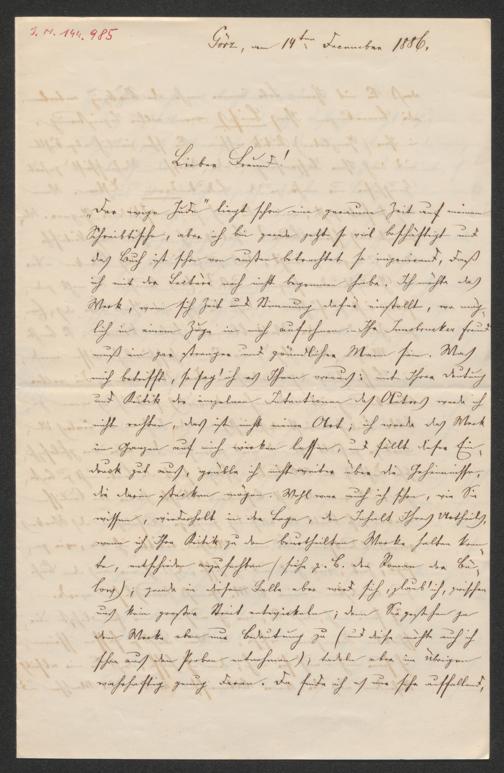 I. N. 144.985
Görz, am 14ten Dezember 1886.
Lieber Freund!
„Der ewige Jude“ liegt schon eine geraume Zeit auf meinem
Schreibtische, aber ich bin gerade jetzt so viel beschäftigt und
das Buch ist schon von außen betrachtet so imponirend, daß
ich mit der Lectüre noch nicht begonnen habe. Ich möchte das
Werk, wenn sich Zeit und Stimmung dafür einstellt, wo mög-
lich in einem Zuge in mich aufnehmen. Ihr Innsbrucker Freund
muß ein gar strenger und gründlicher Mann sein. Was
mich betrifft, so sag' ich es Ihnen voraus: mit Ihrer Deutung
und Kritik der einzelnen Intentionen des Autors werde ich
nicht rechten, das ist nicht meine Art; ich werde das Werk
im Ganzen auf mich wirken lassen, und fällt dieser Ein-
druck gut aus, grüble ich nicht weiter über die Geheimnisse,
die darin stecken mögen. Wohl war auch ich schon, wie Sie
wissen, wiederholt in der Lage, den Inhalt Ihres Urtheils,
wenn ich Ihre Kritik zu dem beurtheilten Werke halten konn-
te, entschieden anzufechten (siehe z. B. den Roman der
); gerade in diesem Falle aber wird sich, glaub' ich, zwischen
uns kein großer Streit entwickeln; denn Sie gestehen ja
dem Werke eben nur Bedeutung zu (und diese möchte auch ich
schon aus den Proben entnehmen), tadeln aber im Übrigen
wahrhaftig genug daran. Da finde ich es nur sehr auffallend,